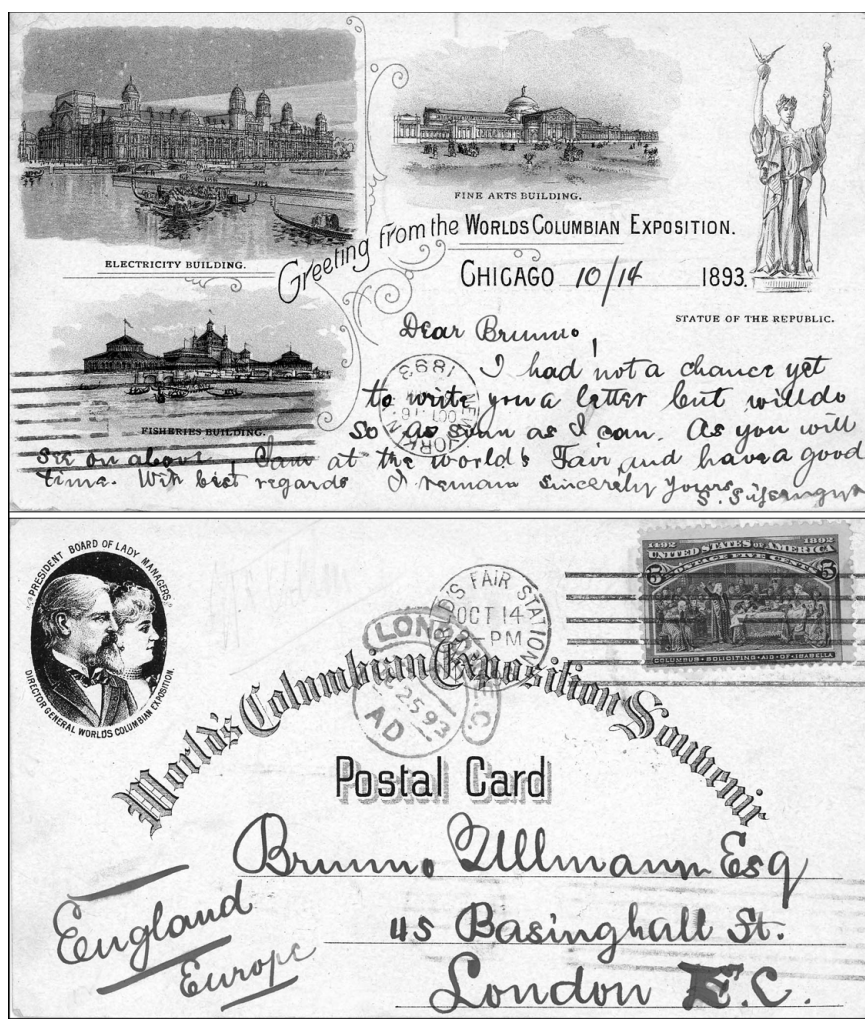 ELECTRICITY BUILDING.
FINE ARTS BUILDING.
Greeting from the WORLDS COLUMBIAN EXPOSITION.
CHICAGO 10/14 1893.
STATUE OF THE REPUBLIC.
FISHERIES BUILDING.
Dear Brunno,
I had not a chance yet
to write you a letter but will do
so as soon as I can. As you will
see on above I am at the World's Fair, and have a good
time. With best regards I remain sincerely yours
S.
1893
NEW YORK, N
OCT 16
"PRESIDENT BOARD OF LADY MANAGERS"
DIRECTOR GENERAL WORLD'S COLUMBIAN EXPOSITION.
D'S FAIR STATION
OCT 14
PM
LONDON
E.C
25 93
AD
1492 1892
UNITED STATES OF AMERICA
POSTAGE FIVE CENTS
5 5
COLUMBUS SOLICITING AID OF ISABELLA
World's Columbian Exposition Souvenir
Postal Card
Brunno Ullmann Esq
45 Basinghall St.
London E.C.
England
Europe